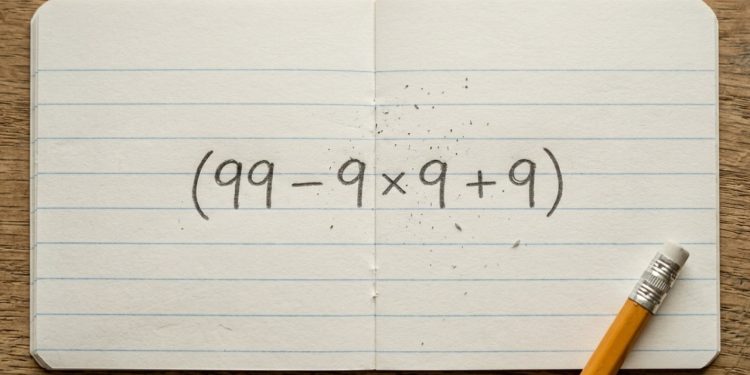 (99 − 9 × 9 + 9)